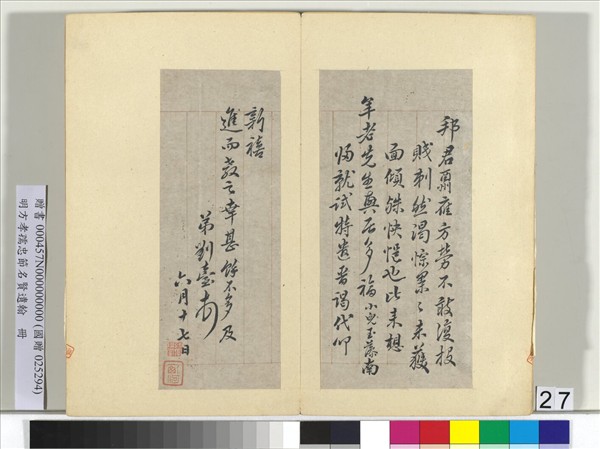 邦君肅雍方勞不敢復投
賤刺然渴悰累々未獲
面傾殊怏悒也比来想
年老先生興居多福小兒玉藻南
歸就試特遣耑謁代叩
新禧
進而教之幸甚餘不多及
弟劉臺
六月十七日
贈書 000457N000000000 (國贈 025294)
明方孝孺忠節名賢遺翰 冊
27